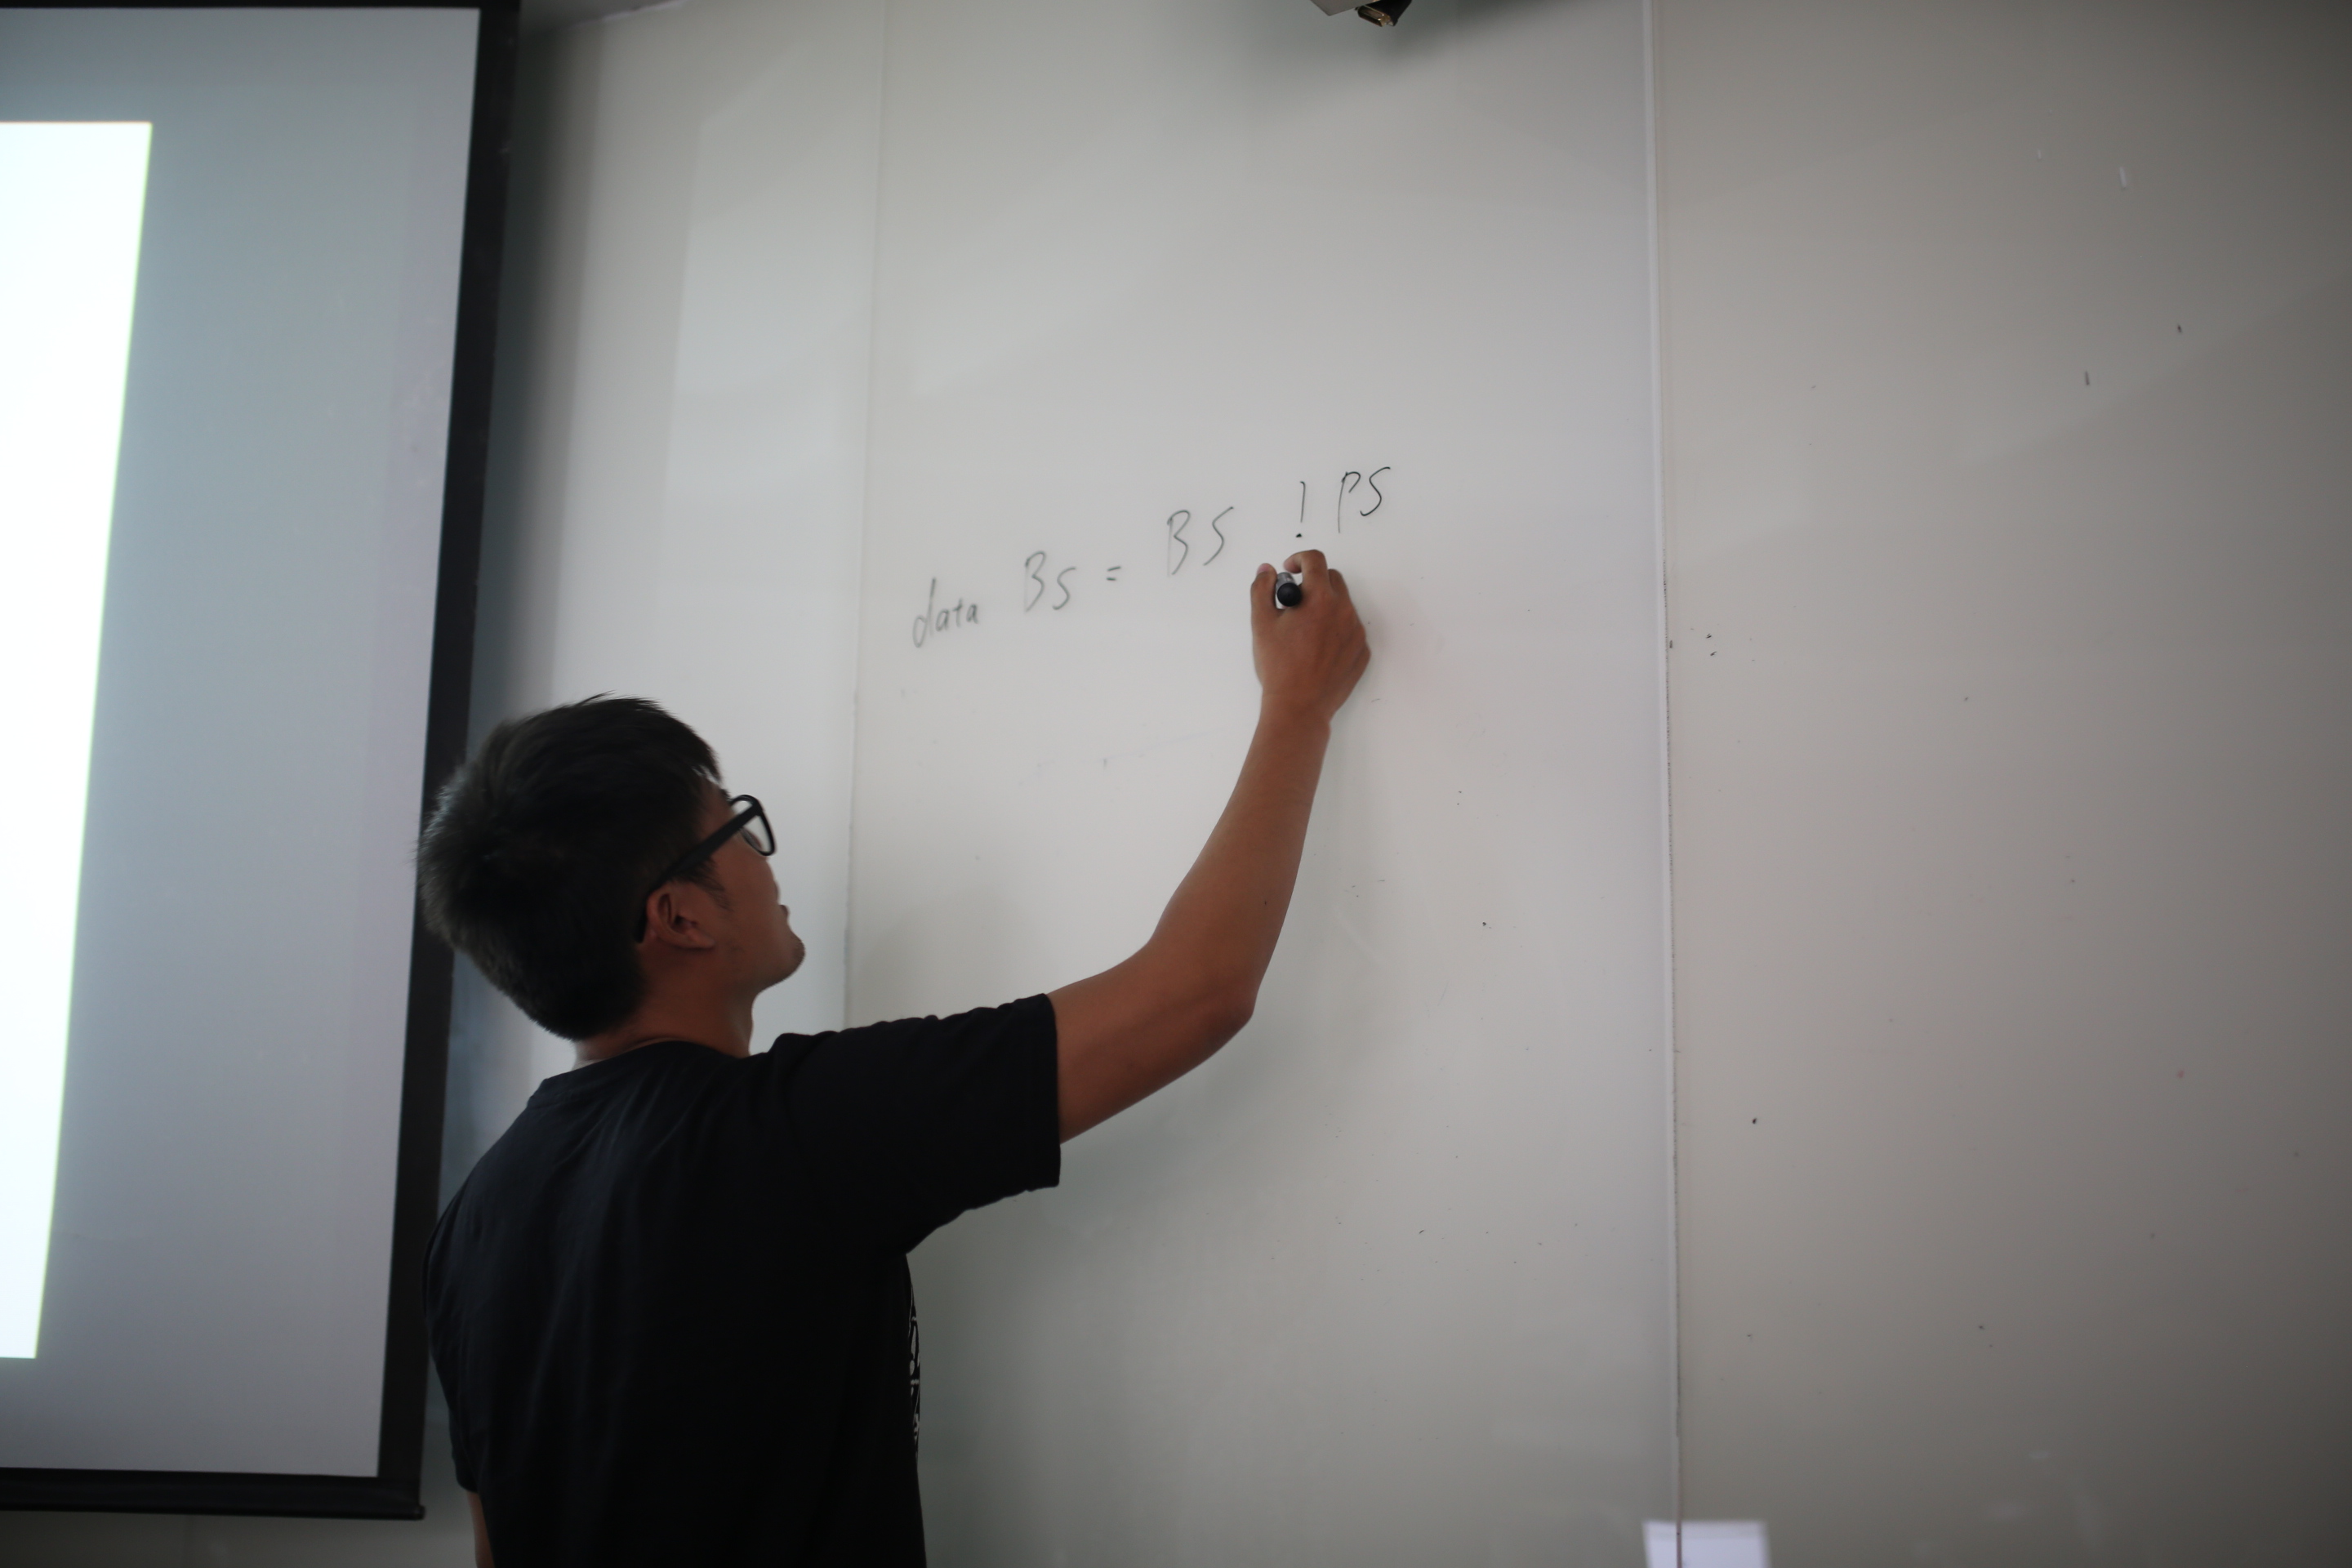 data BS = BS ! PS